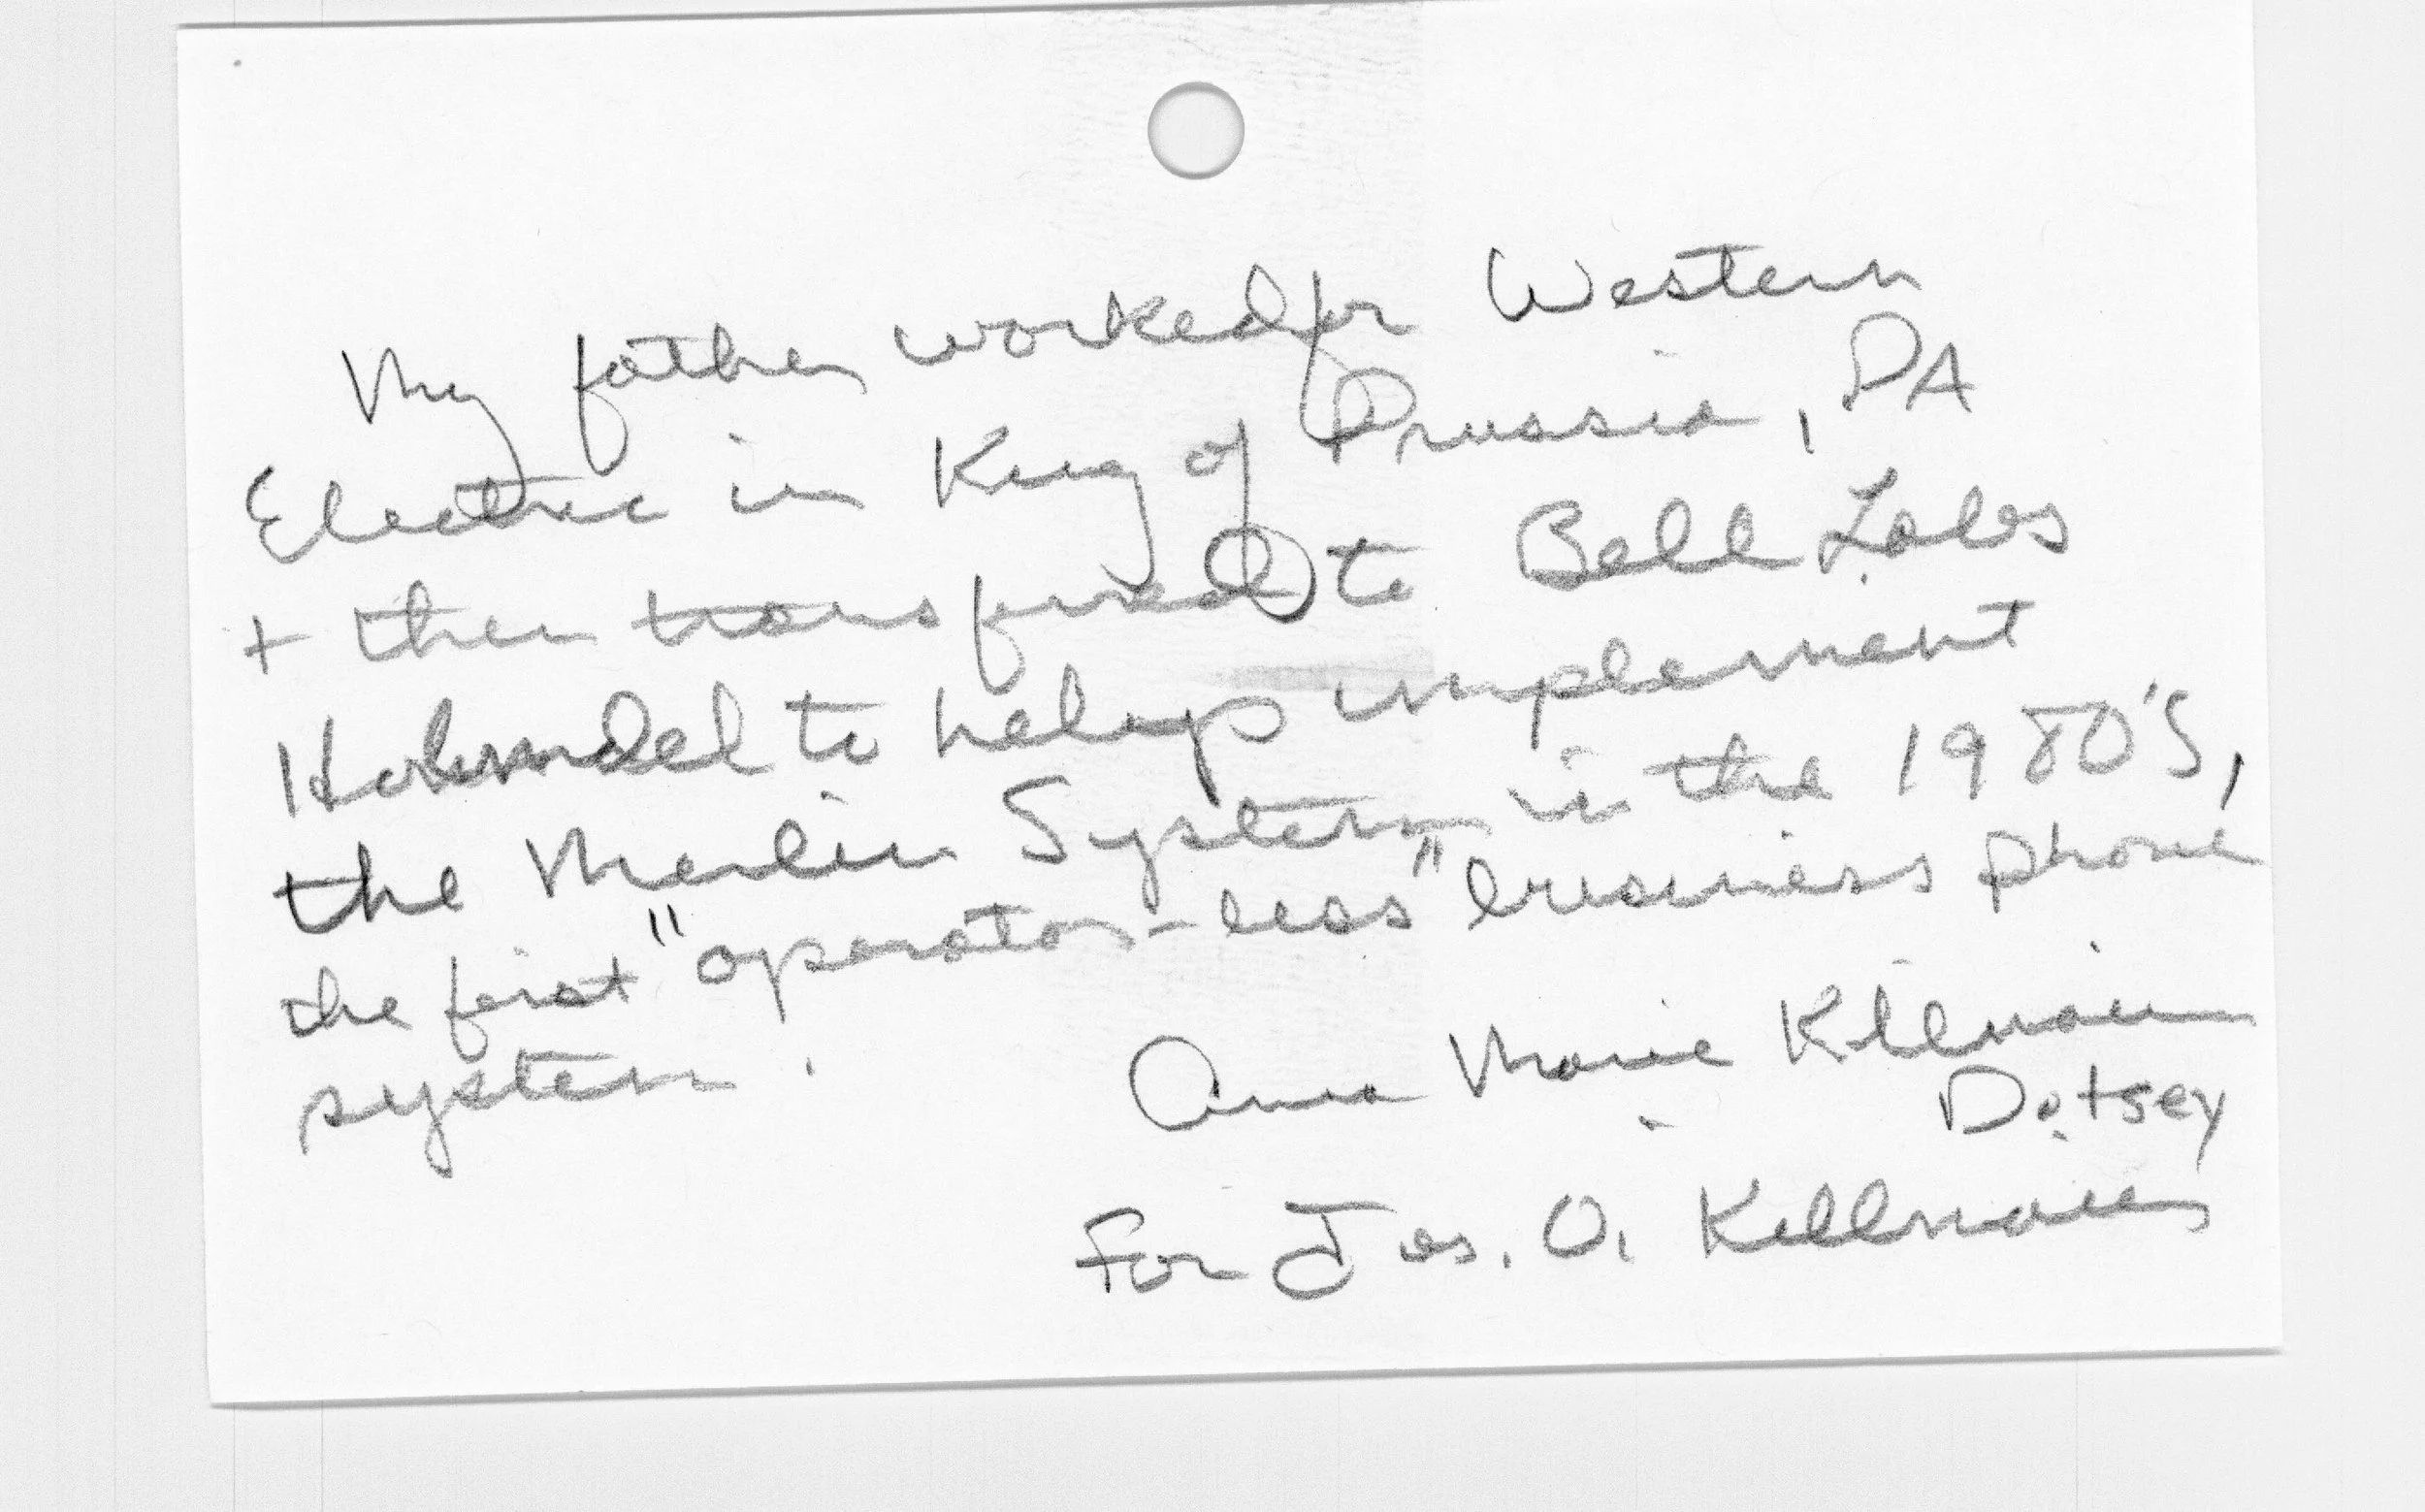 My father worked for Western
Electric in King of Prussia, PA
+ then transfered to Bell Labs
Holmdel to help implement
the Merlin System in the 1980's,
the first "operator-less" business phone
system.
Anna Marie Killmain
Dotsey
For Jos. O. Killmain